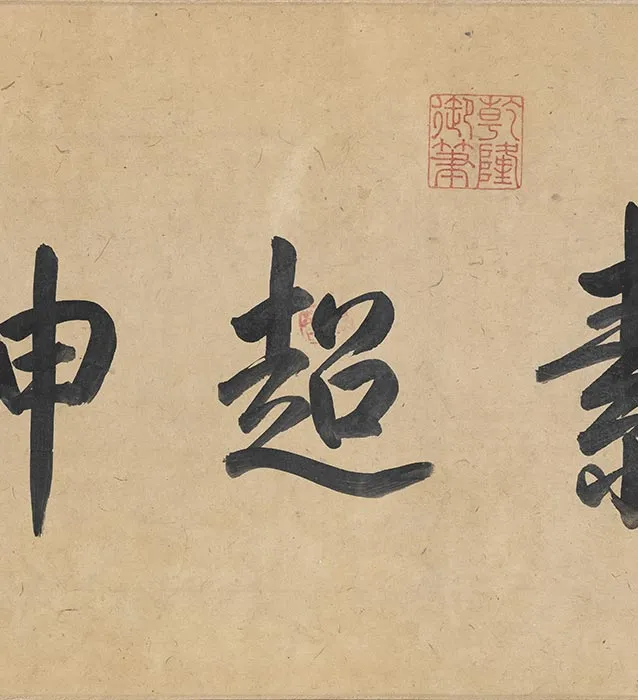 素超神
乾隆
御筆